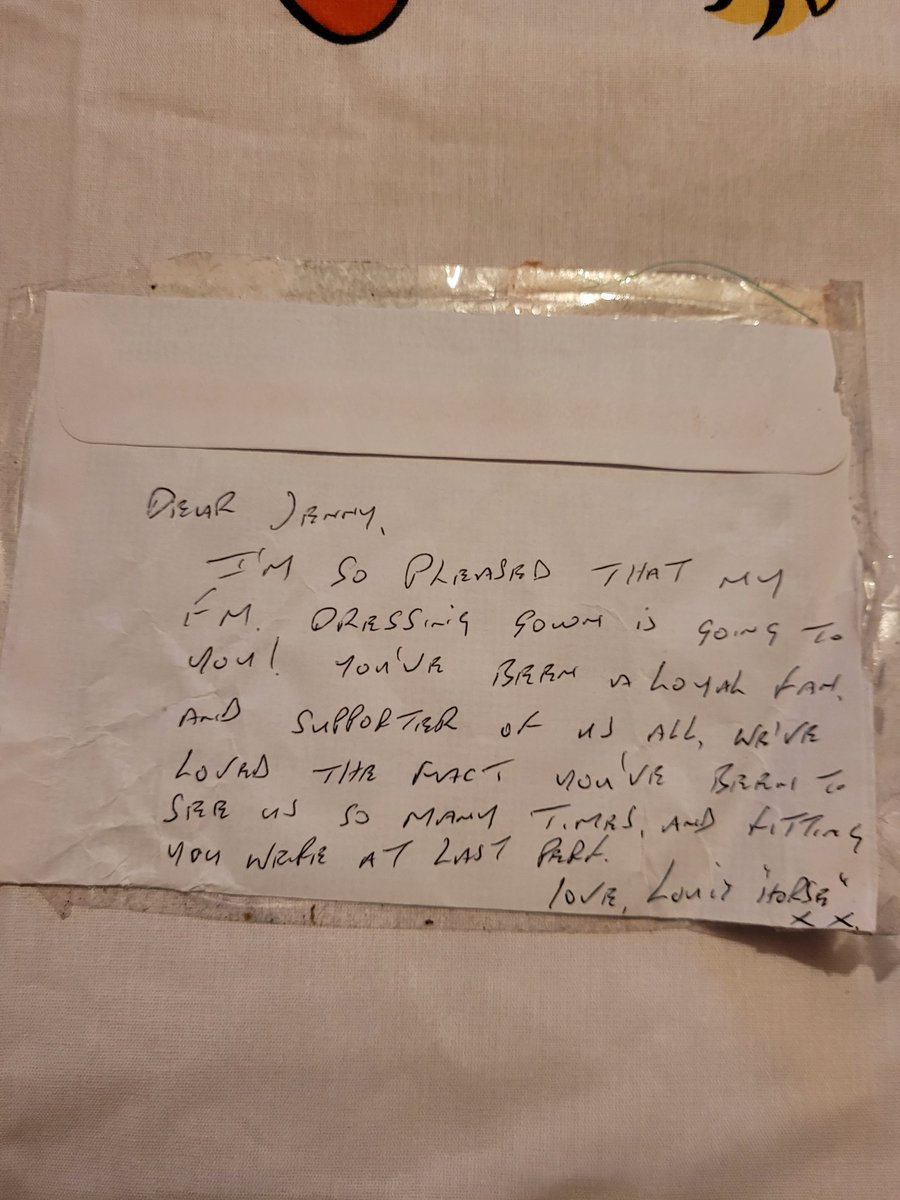 DEAR JENNY,
I'M SO PLEASED THAT MY
F.M. DRESSING GOWN IS GOING TO
YOU! YOU'VE BEEN A LOYAL FAN,
AND SUPPORTER OF US ALL, WE'VE
LOVED THE FACT YOU'VE BEEN TO
SEE US SO MANY TIMES, AND FITTING
YOU WERE AT LAST PERF.
LOVE, LOUIS "HORSE"
X X.